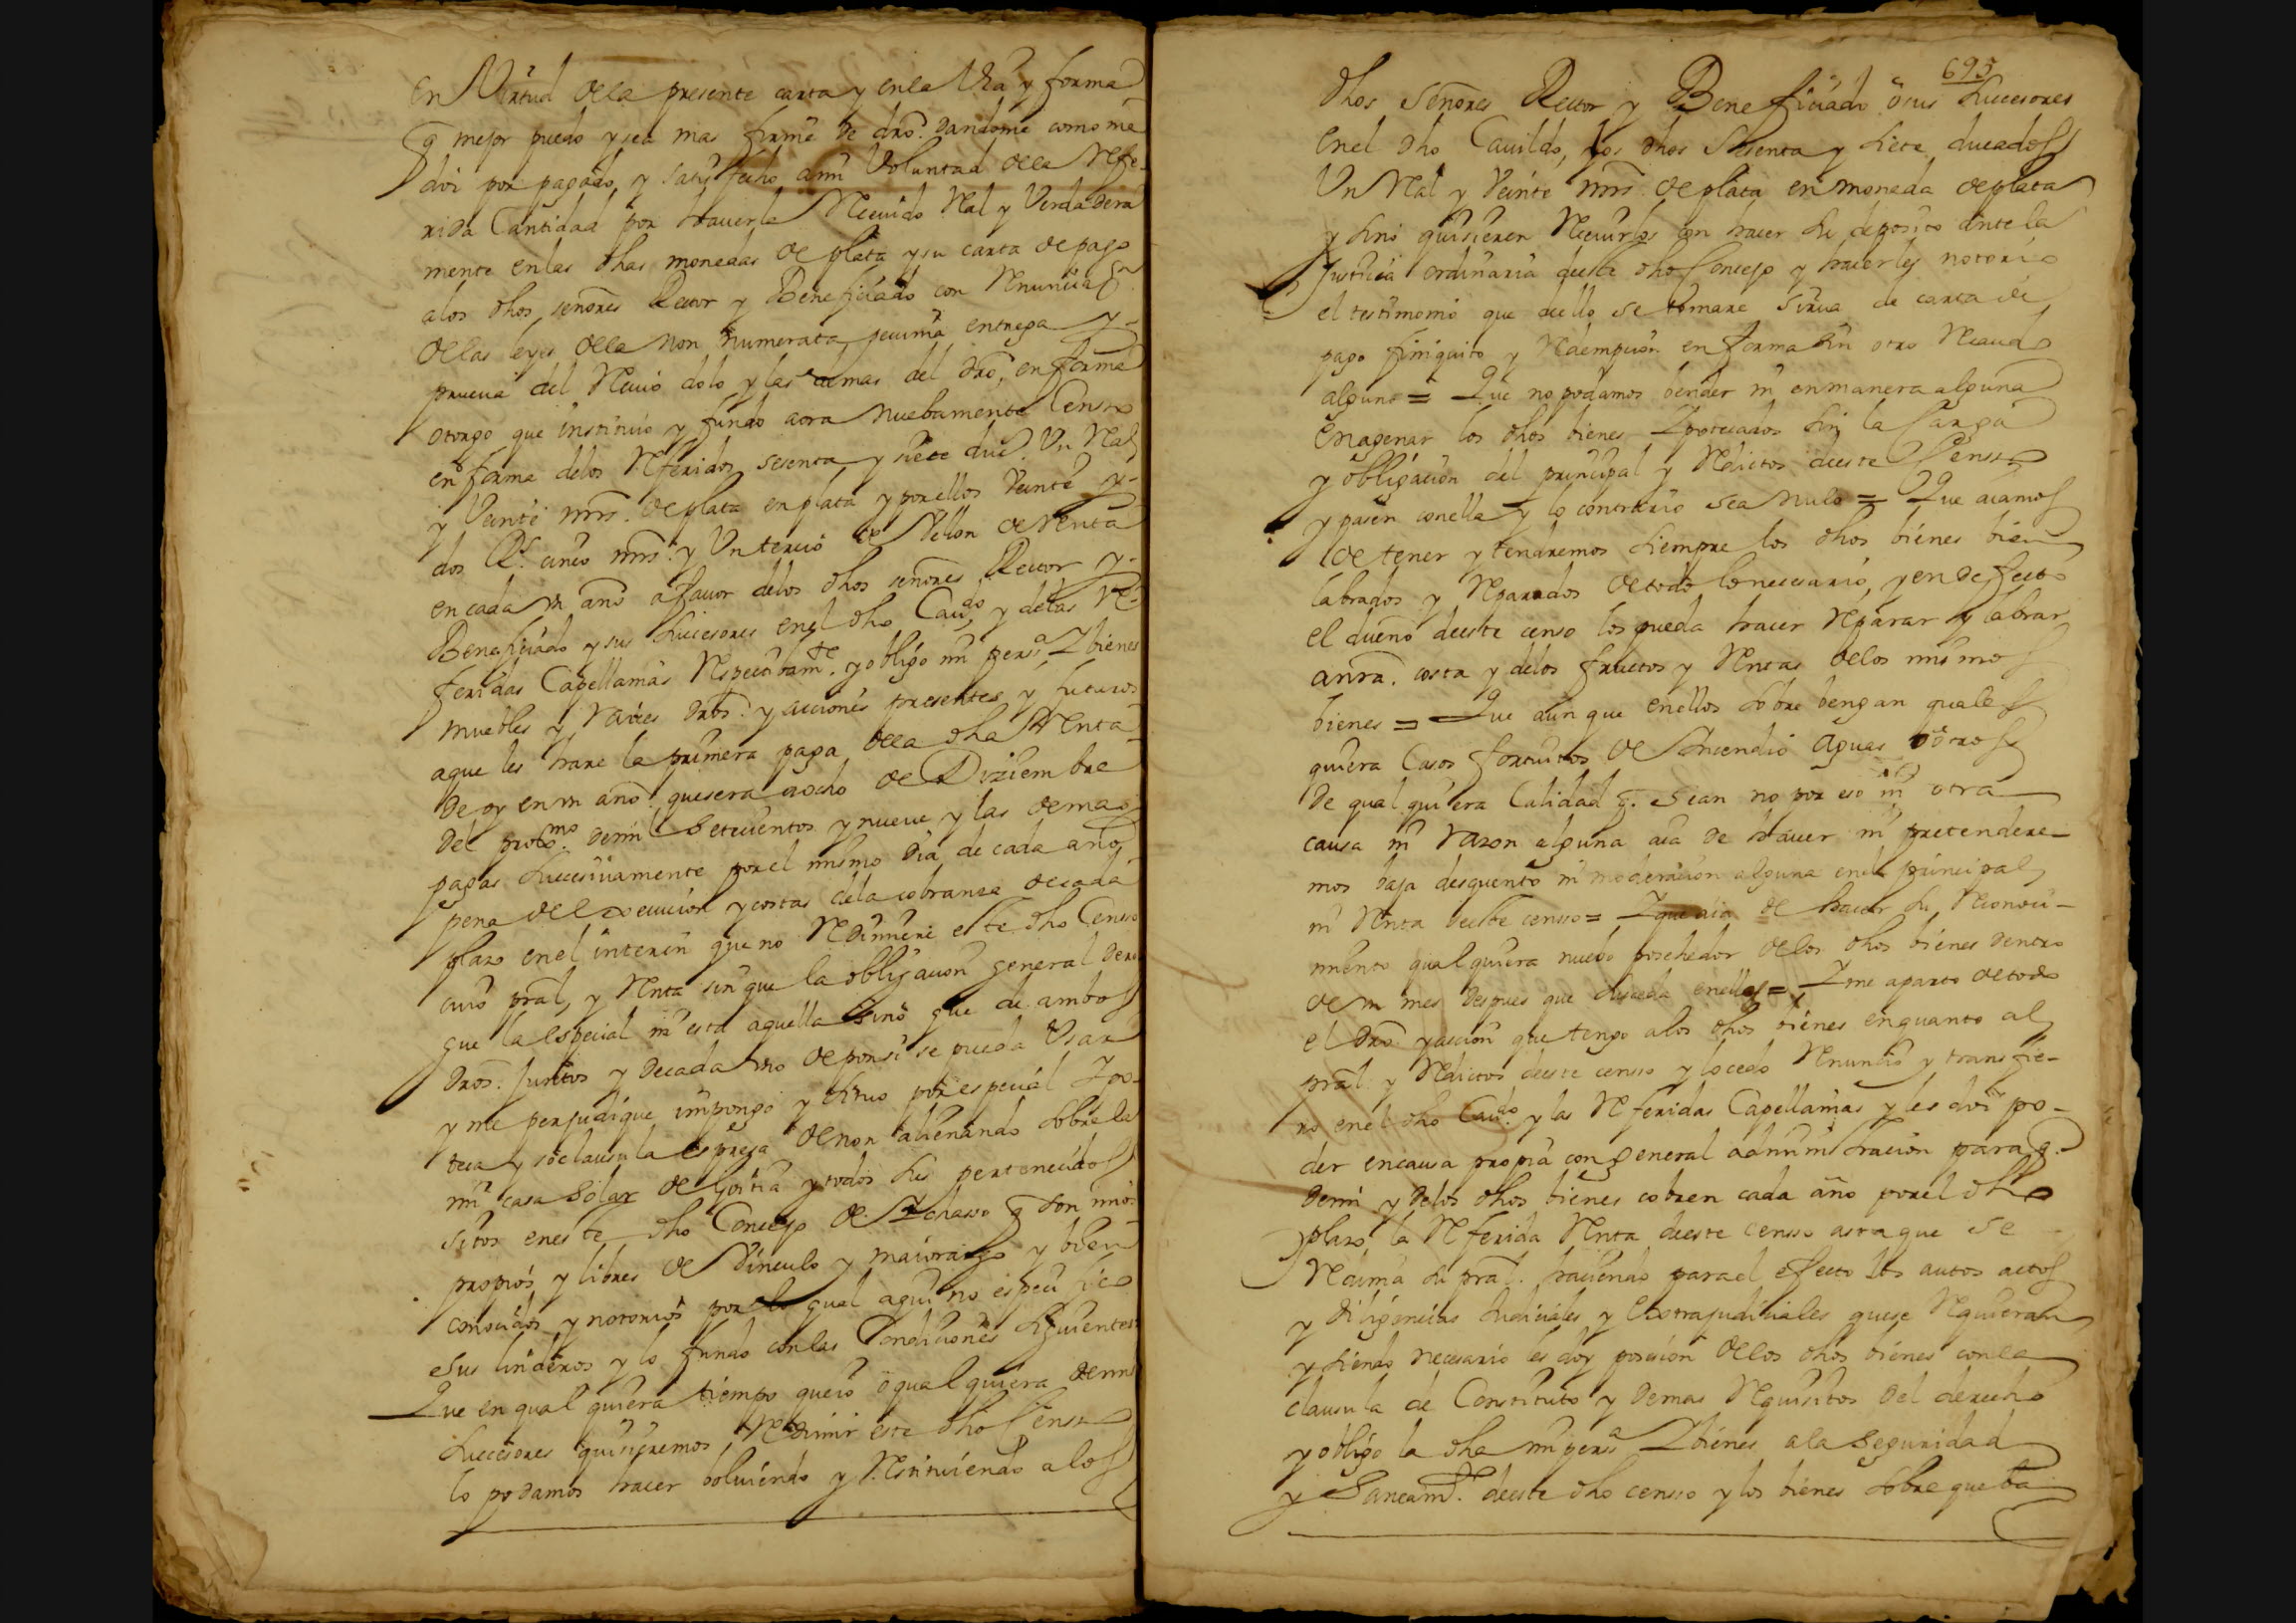 en Virtud de la presente carta y en la Via y forma
q̃ mejor puedo y sea mas firme de dro. dandome como me
doi por pagado, y satisfecho a mi Voluntad de la Refe-
rida Cantidad por hauerla Reciuido Real y Verdadera
mente en las dhas monedas de plata y su carta de pago
a los dhos señores Rector y Beneficiado con Renunciaon
de las leyes de la non numerata pecunia entrega y-
prueua del Reciuo dolo y las demas del dro, en forma
otorgo que instituio y fundo aora nuebamente Censso
en forma de los Referidos sesenta y siete duc. Un Real
y Veinte mrs. de plata en plata y por ellos Veinte y-
dos Rs. cinco mrs. y Un tercio de Vellon de Renta
en cada un año a fauor de los dhos señores Rector y-
Beneficiado y sus subcesores en el dho Caudo, y de las Re-
feridas Capellanias Respectibamte. y obligo mi persa Y bienes
muebles y Raices dros. y acciones presentes y futuros
a que les hare la primera paga de la dha Renta-
de oy en un año. que sera a ocho de Diziembre
del proxmo. de mil setecientos y nueue y las demas
pagas subcesiuamente por el mismo dia de cada año
pena de execucion y costas de la cobranza de cada
plazo en el interin que no Redimiere este dho Censso
cuio pral, y Renta sin que la obligacion general dero
gue la especial ni esta aquella sino que de ambos
dros. juntos y de cada uno de por si se pueda Usar
y me perjudique impongo y situo por especial Ypo-
teca y so clausula espresa de non alienando sobre la
mi casa solar de Goitia y todos sus pertenecidos
sitos en este dho Concejo de q̃ son mios
propios y libres de Vinculo y maiorazgo y bien
conocidos y notorios por lo qual aqui no espeçifico
sus linderos y lo fundo con las Condiciones siguientes
Que en qual quiera tiempo que io o qual quiera de mis
subcesores quisieremos Redimir este dho Censso
lo podamos hacer bolviendo y Restituiendo a los
695
dhos Señores Rector y Beneficiado o sus subcesores
en el dho Cauildo, los dhos Sesenta y siete ducados
Un Real y Veinte mrs. de plata en moneda de plata
y si no quisieren Reciuirlos con hacer su deposito ante la
Justicia ordinaria deeste dho Concejo y hacerles notorio
el testimonio que dello se tomare sirua de carta de
pago finiquito y Redempcion en forma sin otro Recaudo
alguno = Que no podamos bender ni en manera alguna
enagenar los dhos bienes Ypotecados sin la Carga
y obligacion del principal y Reditos deeste Censso
y pasen con ella y lo contrario sea nulo = Que aiamos
de tener y tendremos siempre los dhos bienes bien
labrados y Reparados de todo lo necesario, y en defecto
el dueño deeste censo los pueda hacer Reparar y labrar
a nra. costa y de los fructos y Rentas de los mismos
bienes = Que aun que en ellos sobre bengan quales
quiera Casos fortuitos de Yncendio aguas o otros
de qual quiera Calidad q̃. sean no por eso ni otra
causa ni Razon alguna aia de hauer ni pretendere-
mos baja desquento ni moderacion alguna en el principal
ni Renta deeste censso = Y que aia de hacer su Reconoci-
miento qual quiera nuebo posehedor de los dhos bienes dentro
de un mes despues que subceda en ellos = Y me aparto de todo
el dro. y accion que tengo a los dhos bienes en quanto al
pral. y Reditos deeste censso y lo cedo Renuncio y transfie-
ro en el dho Caudo. y las Referidas Capellanias y les doi po-
der en causa propia con general administracion para q̃.
de mi y de los dhos bienes cobren cada año por el dho
plazo la Referida Renta deeste censso asta que se
Redima su pral. haciendo para el efecto los autos actos
y diligencias Judiciales y Extrajudiciales que se Requieran
y siendo necesario les doy posesion de los dhos bienes con la
clausula de Constituto y demas Requisitos del derecho
y obligo la dha mi persa Y bienes a la seguridad
y Saneamto. deeste dho censso y los bienes sobre que ba